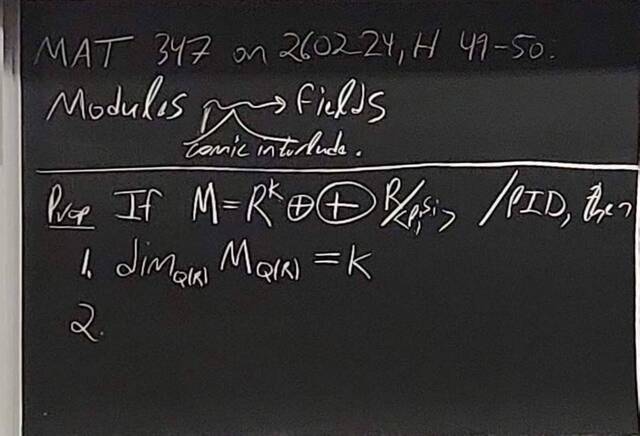 MAT 347 on 260224, H 49-50:
Modules → Fields
comic interlude.
Prop If M=R^k ⊕ ⊕ R/<p_i^{s_i}> /PID, then
1. dim_{Q(R)} M_{Q(R)} = k
2.